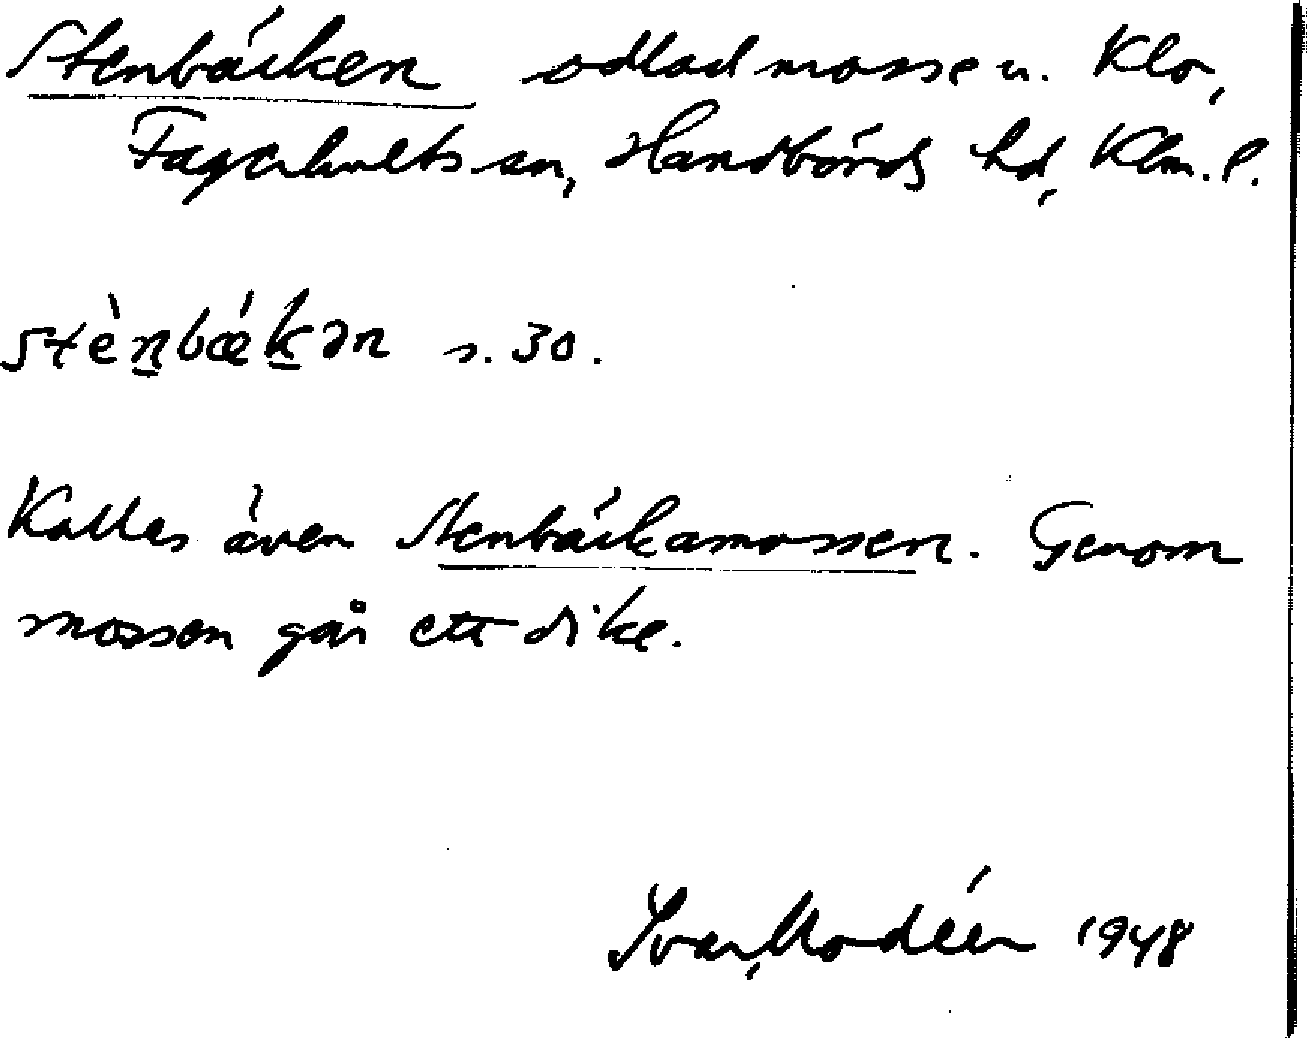 Stenbäcken odlad mosse u. Klo,
Fagerhults sn, Handbörds hd, Klm. l.
stènbǽkən s. 30.
Kallas även Stenbäckamossen. Genom
mossen går ett dike.
Ivar Modéer 1948